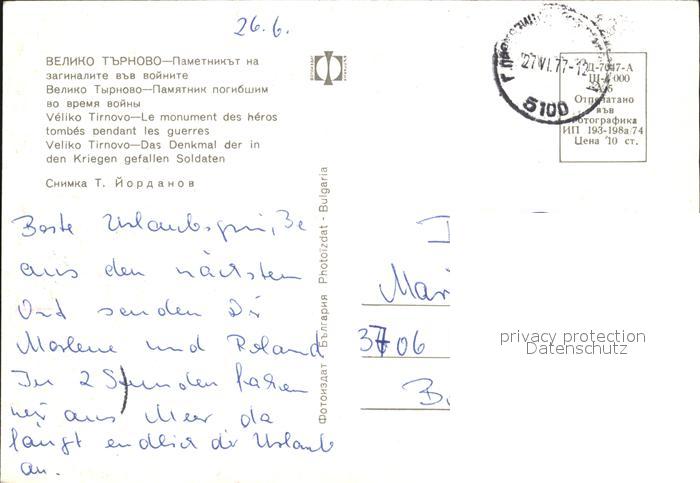 26.6.
ВЕЛИКО ТЪРНОВО—Паметникът на
загиналите във войните
Велико Тырново—Памятник погибшим
во время войны
Véliko Tirnovo—Le monument des héros
tombés pendant les guerres
Veliko Tirnovo—Das Denkmal der in
den Kriegen gefallen Soldaten
Снимка Т. Йорданов
Beste Urlaubsgrüße
aus den nächsten
Ort senden Dir
Marlene und Roland
In 2 Stunden fahren
wir aus Meer da
fängt endlich der Urlaub
an.
Фотоиздат България Photoizdat - Bulgaria
27 VI. 77-12
5100
Д-7047-А
Отпечатано
във
Фотографика
ИП 193-198а/74
Цена 10 ст.
Mar
3706
B.
privacy protection
Datenschutz